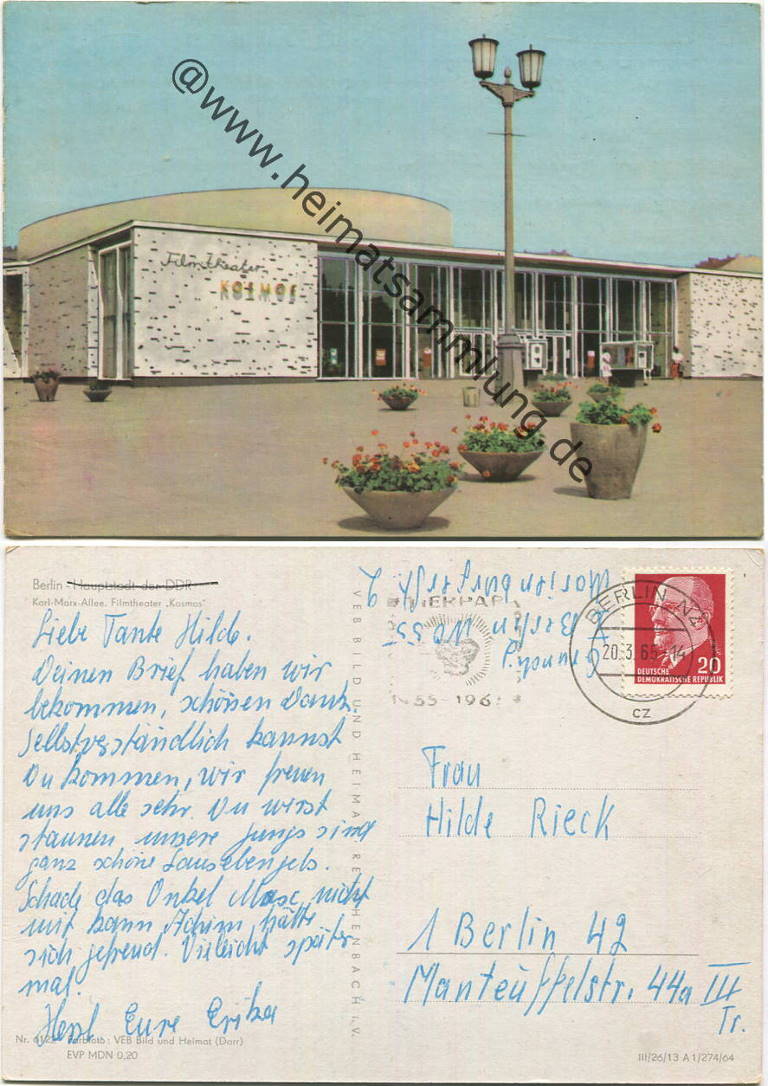 @www.heimatsammlung.de
Filmtheater
KOSMOS
Berlin - Hauptstadt der DDR
Karl-Marx-Allee. Filmtheater „Kosmos"
Liebe Tante Hilde.
Deinen Brief haben wir
bekommen, schönen Dank.
Selbstverständlich kannst
Du kommen, wir freuen
uns alle sehr. Du wirst
staunen unsere Jungs sind
ganz schöne Lausebengels.
Schade das Onkel Max nicht
mit kann Achim hätte
sich gefreut. Vieleicht später
mal.
Herzl Eure Erika
Nr. Farbfoto: VEB Bild und Heimat (Darr)
EVP MDN 0,20
VEB BILD UND HEIMAT REICHENBACH i. V.
Berlin NO 55
TIERPARK
1955-196
BERLIN N4
20.3.65-14
cz
DEUTSCHE
DEMOKRATISCHE REPUBLIK
20
Frau
Hilde Rieck
1 Berlin 42
Manteuffelstr. 44a III
Tr.
III/26/13 A 1/274/64